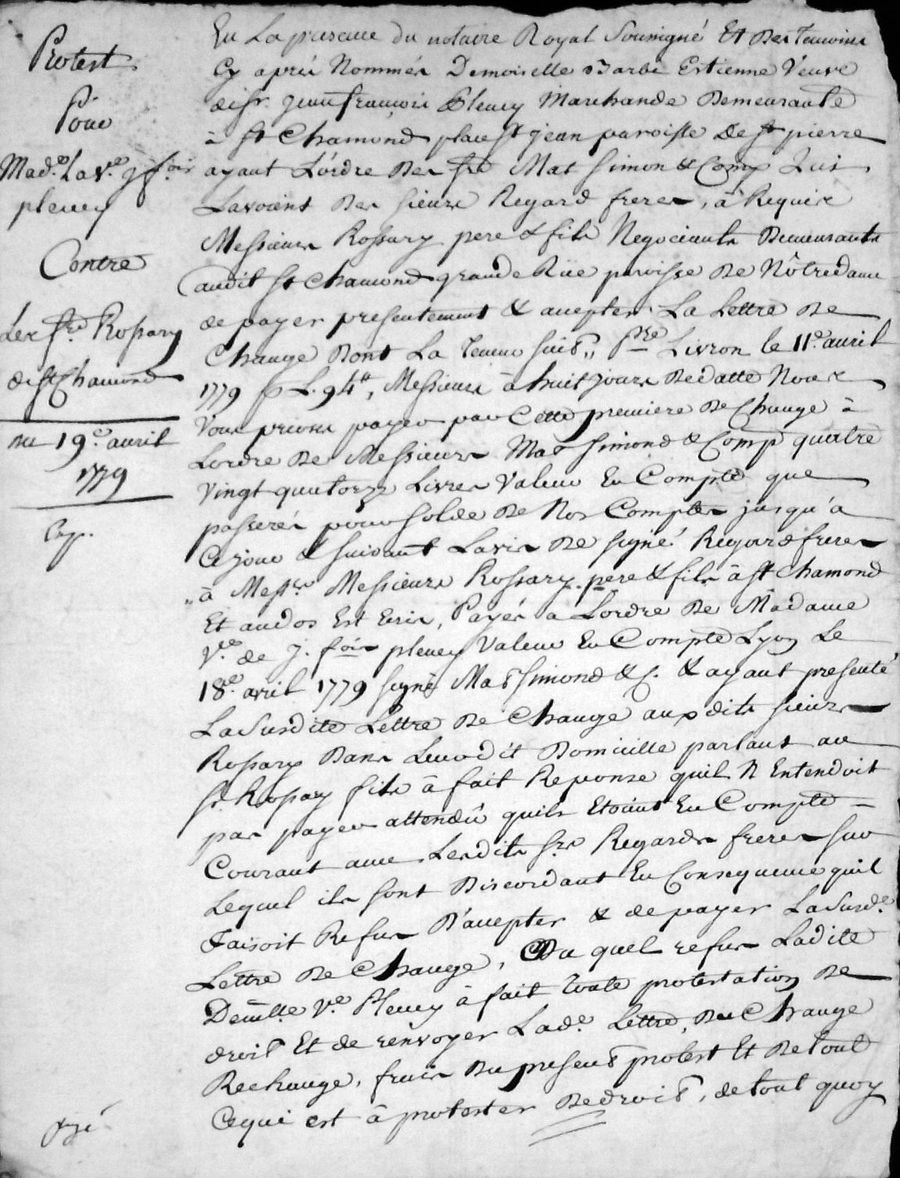 Protest
Pour
Mad.e La v.e J f.ois
pleney
Contre
Les srs Rossary
de st Chamond
du 19.e avril
1779
En La presence du notaire Royal Soussigné Et Des Temoins
Cy aprés Nommés Demoiselle Barbe Estienne Veuve
de sr. jean françois Pleney Marchande Demeurante
à st Chamond place st jean paroisse De st pierre
ayant L'ordre Des srs Mas Simon & Comp Qui
Lavoient Des sieurs Regard freres, à Requis
Messieurs Rossary pere & fils Negociants Demeurants
audit st Chamond grande Rüe paroisse De Nôtre dame
de payer presentement & accepter La Lettre De
Change Dont La Teneur suit, Livron le 11.e avril
1779 p L. 94#, Messieurs à huit jours De datte Nous
Vous prions payer par Cette premiere De Change à
Lordre De Messieurs Mas Simond & Comp quatre
Vingt quatorze Livres Valeur En Compte que
passerés pour Solde De Nos Comptes jusqu'à
Ce jour & suivant Lavis De signé Regard freres
à Mess.rs Messieurs Rossary pere & fils à st Chamond
Et au dos Est Ecris, Payés a Lordre De Madame
V.e de J. fois pleney Valeur En Compte Lyon Le
18.e avril 1779 signé Mas Simond & C. & ayant presenté
La Susdite Lettre De Change aux dits sieurs
Rossary Dans Leurdit Domicille parlant au
sr. Rossary fils à fait Reponse quil N Entendoit
pas payer attendû quils Etoient En Compte
Courant avec Lesdits srs Regards freres sur
Lequel ils sont Discordant En Consequence quil
faisoit Refus D'accepter & de payer La Susd.e
Lettre De Change, Du quel refus Ladite
Demlle V.e Pleney à fait toute protestation De
droit Et de renvoyer Lad.e Lettre, De Change
Rechange, frais Du present protest Et De tout
Ce qui est à protester De droit, de tout quoy